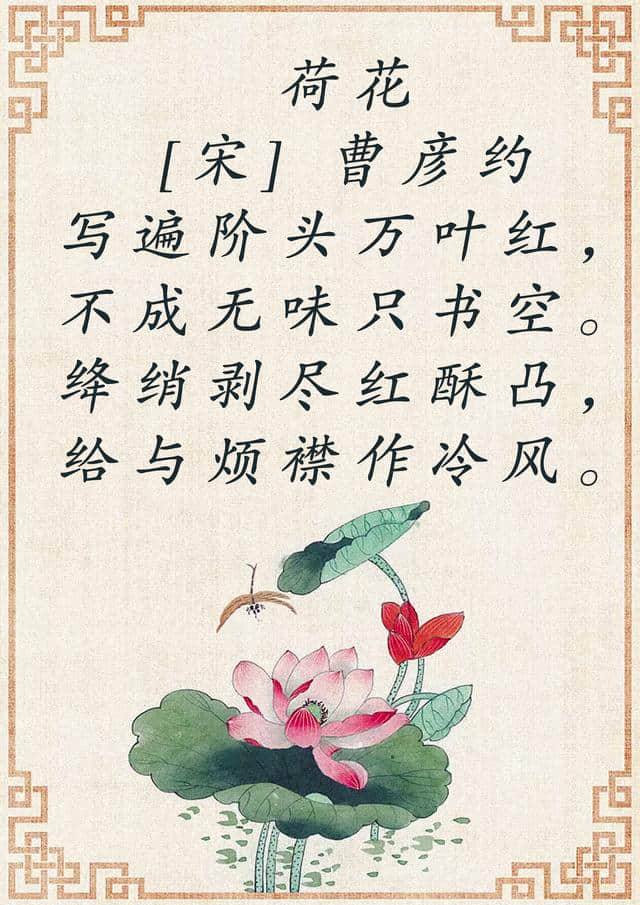 荷花
[宋] 曹彦约
写遍阶头万叶红，
不成无味只书空。
绛绡剥尽红酥凸，
给与烦襟作冷风。